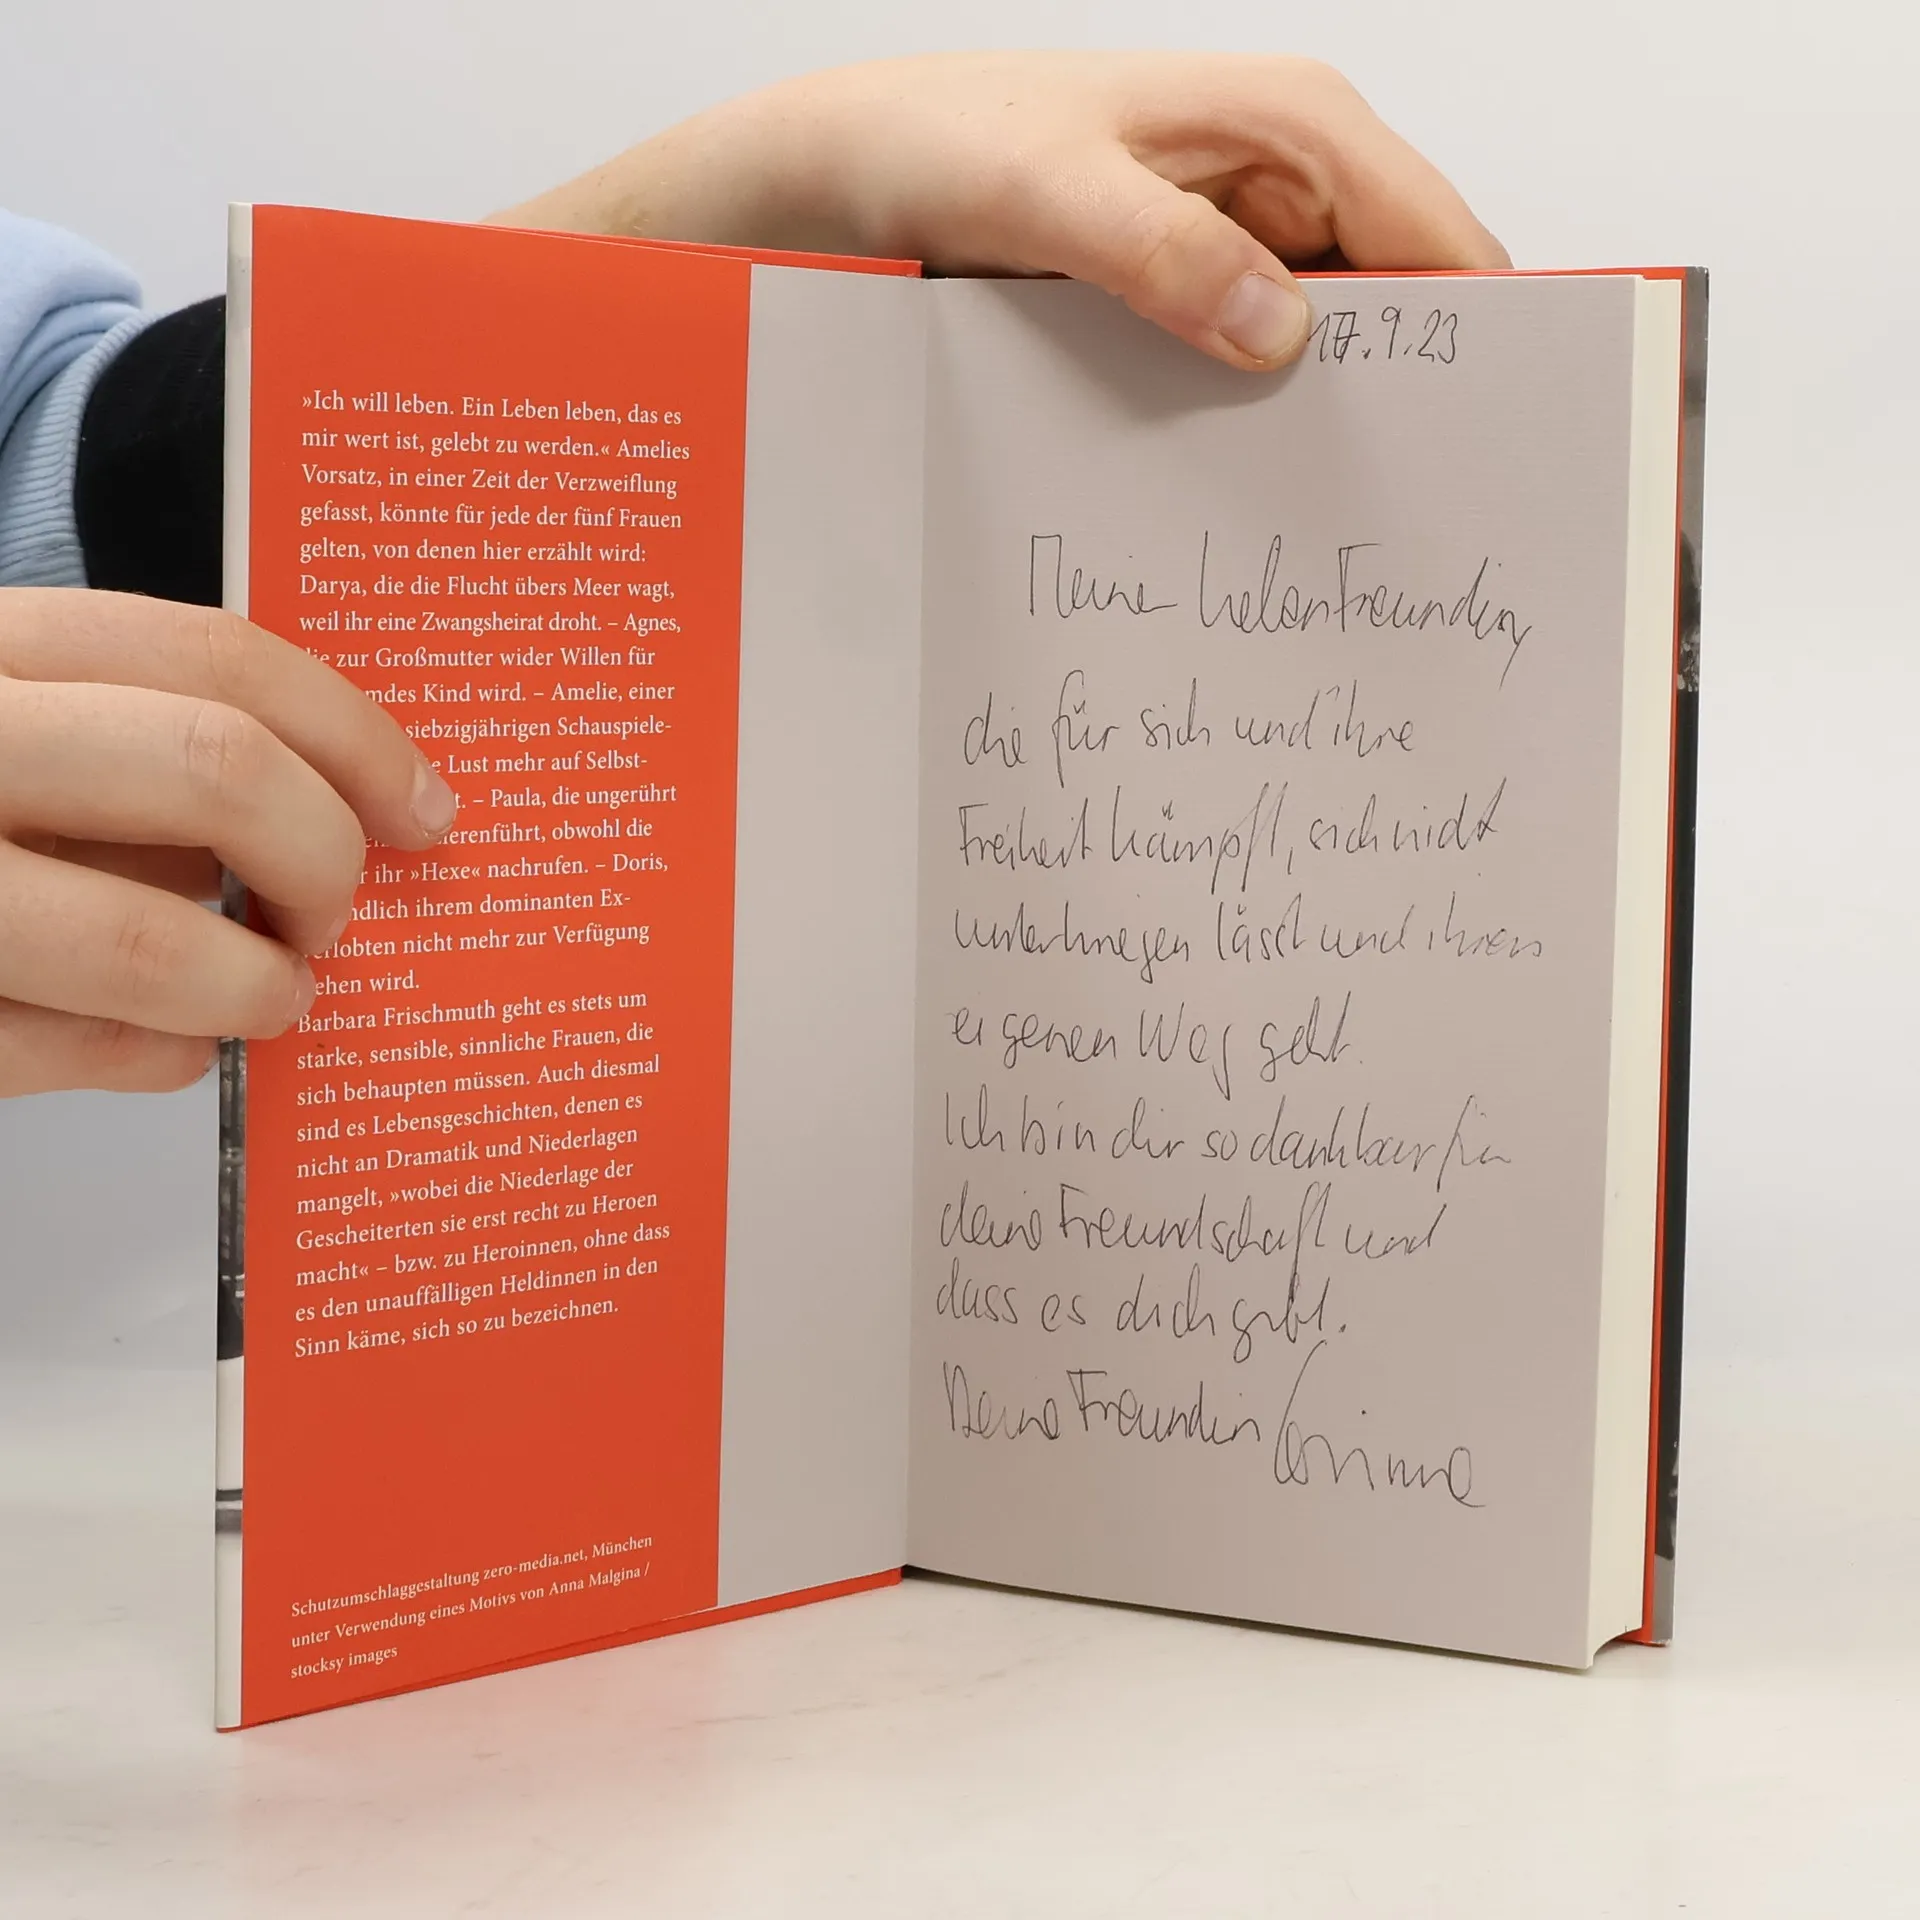 »Ich will leben. Ein Leben leben, das es
mir wert ist, gelebt zu werden.« Amelies
Vorsatz, in einer Zeit der Verzweiflung
gefasst, könnte für jede der fünf Frauen
gelten, von denen hier erzählt wird:
Darya, die die Flucht übers Meer wagt,
weil ihr eine Zwangsheirat droht. – Agnes,
zur Großmutter wider Willen für
Kind wird. – Amelie, einer
siebzigjährigen Schauspiele-
Lust mehr auf Selbst-
– Paula, die ungerührt
obwohl die
ihr »Hexe« nachrufen. – Doris,
ihrem dominanten Ex-
nicht mehr zur Verfügung
wird.
Barbara Frischmuth geht es stets um
starke, sensible, sinnliche Frauen, die
sich behaupten müssen. Auch diesmal
sind es Lebensgeschichten, denen es
nicht an Dramatik und Niederlagen
mangelt, »wobei die Niederlage der
Gescheiterten sie erst recht zu Heroen
macht« – bzw. zu Heroinnen, ohne dass
es den unauffälligen Heldinnen in den
Sinn käme, sich so zu bezeichnen.
Schutzumschlaggestaltung zero-media.net, München
unter Verwendung eines Motivs von Anna Malgina /
stocksy images
17.9.23
Meiner lieben Freundin,
die für sich und ihre
Freiheit kämpft, sich nicht
unterkriegen lässt und ihren
eigenen Weg geht.
Ich bin dir so dankbar für
deine Freundschaft und
dass es dich gibt.
Deine Freundin Corinne